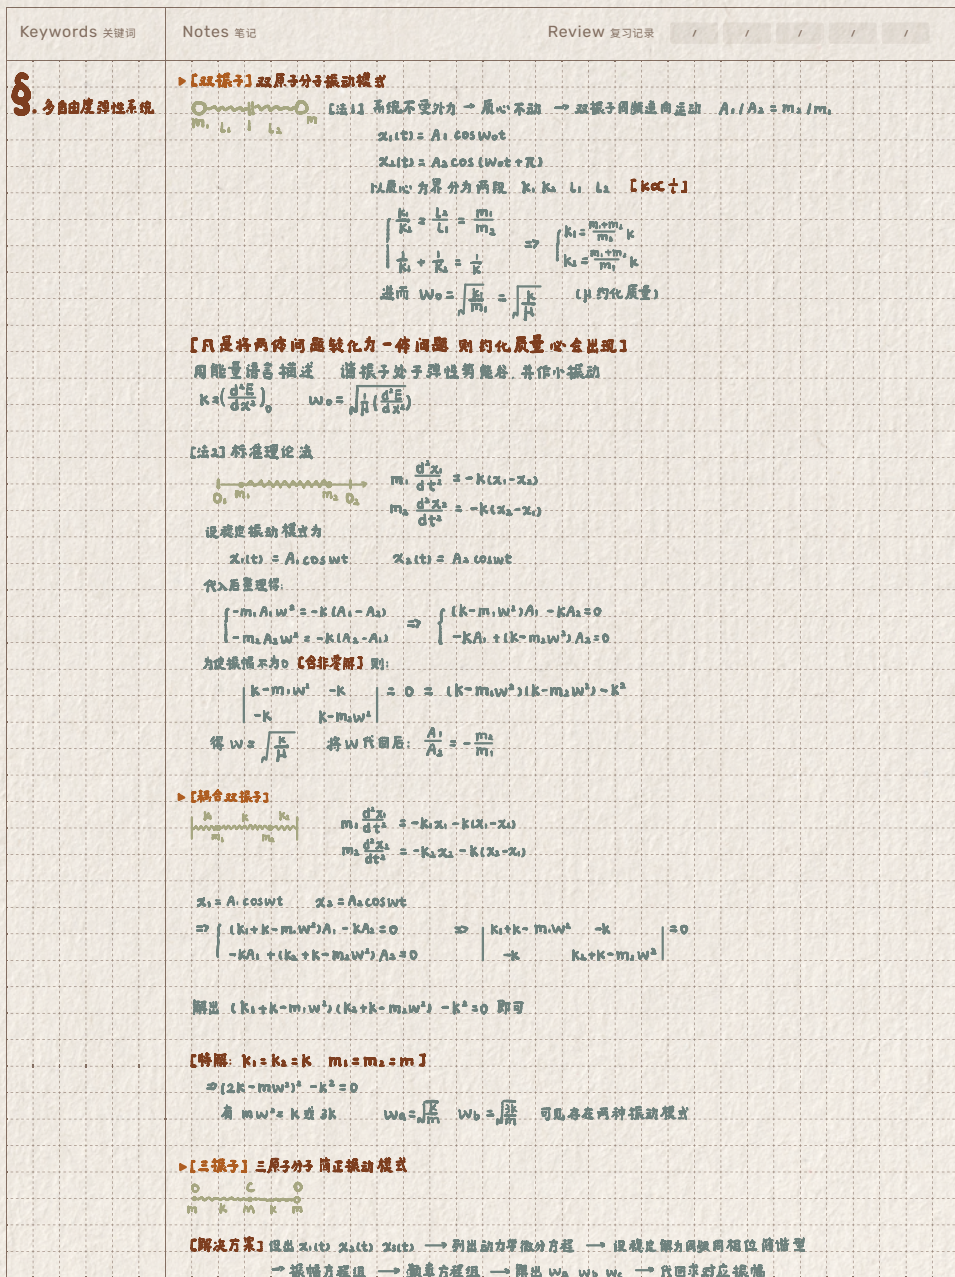 Keywords 关键词 Notes 笔记 Review 复习记录 / / / / /
§. 多自由度弹性系统
▸[双振子] 双原子分子振动模式
m₁ L₁ L₂ m
[法1] 系统不受外力 → 质心不动 → 双振子同频逆向运动 A₁/A₂ = m₂/m₁
x₁(t) = A₁ cos w₀t
x₂(t) = A₂ cos (w₀t + π)
以质心为界分为两段 k₁ k₂ L₁ L₂ [k∝1/L]
{ k₁/k₂ = L₂/L₁ = m₁/m₂
1/k₁ + 1/k₂ = 1/k
=> { k₁ = (m₁+m₂)/m₂ k
k₂ = (m₁+m₂)/m₁ k
进而 w₀ = √(k₁/m₁) = √(k/μ) (μ约化质量)
[凡是将两体问题转化为一体问题 则约化质量必会出现]
用能量语言描述 谐振子处于弹性势能谷, 并作小振动
k = (d²E/dx²)₀ w₀ = √(1/μ (d²E/dx²))
[法2] 标准理论法
O₁ m₁ m₂ O₂
m₁ d²x₁/dt² = -k(x₁-x₂)
m₂ d²x₂/dt² = -k(x₂-x₁)
设稳定振动模式为
x₁(t) = A₁ cos wt x₂(t) = A₂ coswt
代入后整理得:
{ -m₁A₁w² = -k(A₁-A₂)
-m₂A₂w² = -k(A₂-A₁)
=> { (k-m₁w²)A₁ -kA₂=0
-kA₁ +(k-m₂w²)A₂=0
为使振幅不为0 [含非零解] 则:
| k-m₁w² -k |
| -k k-m₂w² | = 0 = (k-m₁w²)(k-m₂w²)-k²
得 w = √(k/μ) 将w代回后: A₁/A₂ = - m₂/m₁
▸[耦合双振子]
k₁ k k₂
m₁ m₂
m₁ d²x₁/dt² = -k₁x₁ -k(x₁-x₂)
m₂ d²x₂/dt² = -k₂x₂ -k(x₂-x₁)
x₁ = A₁ coswt x₂ = A₂coswt
=> { (k₁+k-m₁w²)A₁ -kA₂=0
-kA₁ +(k₂+k-m₂w²)A₂=0
=> | k₁+k-m₁w² -k |
| -k k₂+k-m₂w² | =0
解出 (k₁+k-m₁w²)(k₂+k-m₂w²) -k²=0 即可
[特解: k₁=k₂=k m₁=m₂=m]
=>(2k-mw²)² -k²=0
有 mw²= k 或 3k wa=√(k/m) wb=√(3k/m) 可见存在两种振动模式
▸[三振子] 三原子分子 简正振动模式
O C O
m k M k m
[解决方案] 设出 x₁(t) x₂(t) x₃(t) → 列出动力学微分方程 → 设稳定解为同频同相位简谐型
→ 振幅方程组 → 频率方程组 → 解出 wa wb wc → 代回求对应振幅